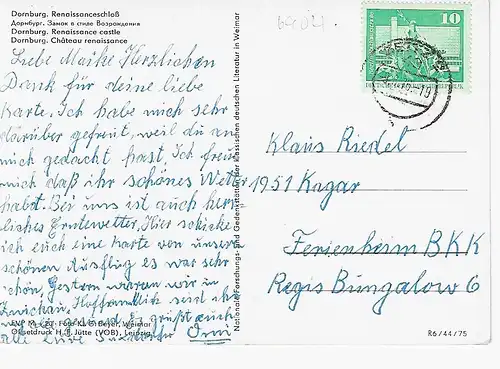 Dornburg. Renaissanceschloß
Дорнбург. Замок в стиле Возрождения
Dornburg. Renaissance castle
Dornburg. Château renaissance
Liebe Maike Herzlichen
Dank für deine liebe
Karte. Ich habe mich sehr
darüber gefreut, weil du an
mich gedacht hast, Ich freu
mich daß ihr schönes Wetter
habt. Bei uns ist auch herr
liches Erntewetter, Hier schicke
ich euch eine Karte von unserm
schönen Ausflug es war sehr
schön, Gestern waren wir in
Zwickau, Hoffentlich sind
und es grüßt euch
alle Eure Omi
EVP M Foto K. G. Beyer, Weimar
Offsetdruck H. F. Jütte (VOB), Leipzig
Nationale Forschungs- und Gedenkstätten der klassischen deutschen Literatur in Weimar
10
Klaus Riedel
1951 Kagar
Ferienheim BKK
Regis Bungalow 6
R6/44/75